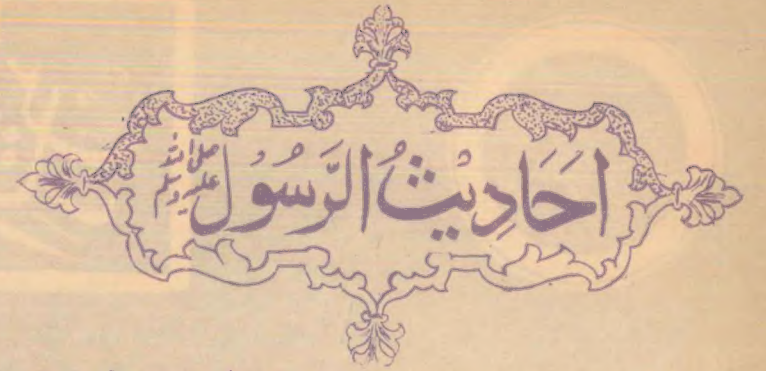 اَحَادِيْثُ الرَّسُوْل صلى الله عليه وسلم